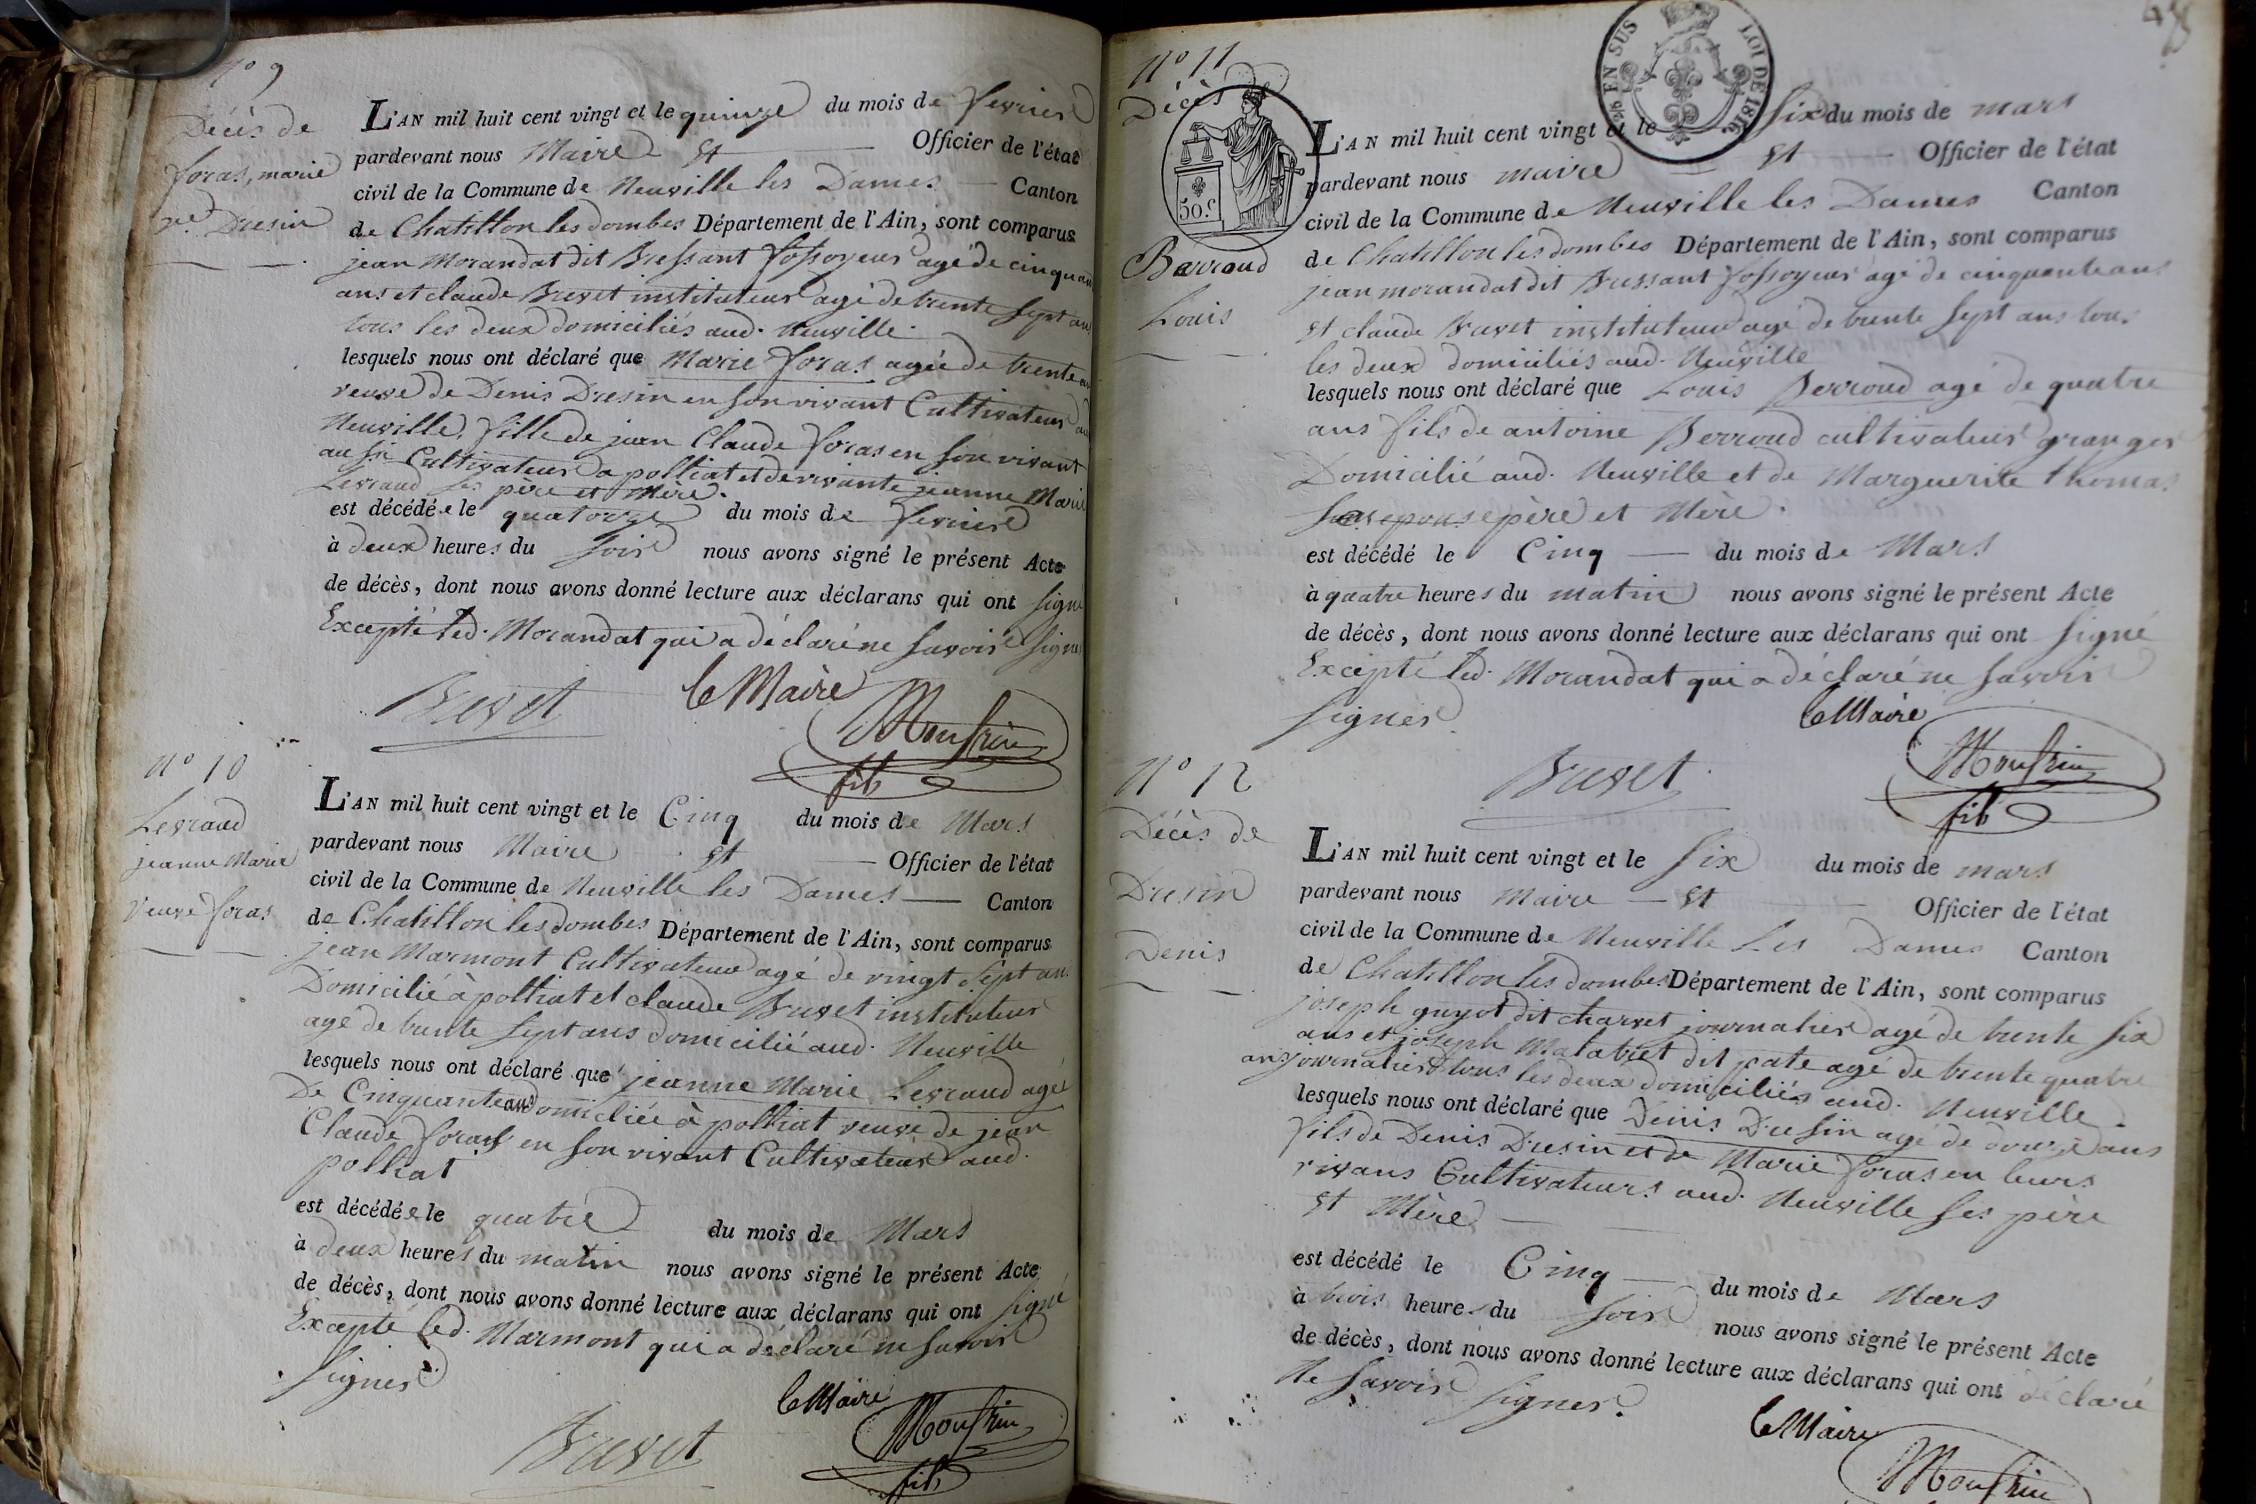 N° 9
Décès de
foras, marie
ve. Dresin
L'AN mil huit cent vingt et le quinze du mois de fevrier
pardevant nous Maire et Officier de l'état
civil de la Commune de Neuville les Dames Canton
de Chatillon les dombes Département de l'Ain, sont comparus
jean Morandat dit Bressant fossoyeur agé de cinquante
ans et claude Brevet instituteur agé de trente sept ans
tous les deux domiciliés aud. Neuville.
lesquels nous ont déclaré que Marie foras agée de trente ans
veuve de Denis Dresin en son vivant Cultivateur aud
Neuville, fille de jean Claude foras en son vivant
aussi Cultivateur a polliat et de vivante jeanne Marie
Levraud ses père et Mère.
est décédée le quatorze du mois de fevrier
à deux heures du soir nous avons signé le présent Acte
de décès, dont nous avons donné lecture aux déclarans qui ont signé
Excepté led. Morandat qui a déclaré ne savoir signer
Brevet
le Maire
Monfrin
fils
N° 10
Levraud
jeanne Marie
Veuve foras
L'AN mil huit cent vingt et le Cinq du mois de Mars
pardevant nous Maire et Officier de l'état
civil de la Commune de Neuville les Dames Canton
de Chatillon les dombes Département de l'Ain, sont comparus
jean Marmont Cultivateur agé de vingt sept ans
Domicilié à polliat et claude Brevet instituteur
agé de trente sept ans domicilié aud. Neuville
lesquels nous ont déclaré que jeanne Marie Levraud agé
De Cinquante ans domiciliée à polliat veuve de jean
Claude foras en son vivant Cultivateur aud.
polliat
est décédée le quatre du mois de Mars
à deux heures du matin nous avons signé le présent Acte
de décès, dont nous avons donné lecture aux déclarans qui ont signé
Excepté led. Marmont qui a déclaré ne savoir
signer
Brevet
le Maire
Monfrin
fils
48
N° 11
Décès
50.c
Barraud
Louis
EN SUS LOI DE 1816.
L'AN mil huit cent vingt et le six du mois de mars
pardevant nous maire et Officier de l'état
civil de la Commune de Neuville les Dames Canton
de Chatillon les dombes Département de l'Ain, sont comparus
jean morandat dit Bressant fossoyeur agé de cinquante ans
et claude Brevet instituteur agé de trente sept ans tous
les deux domiciliés aud. Neuville
lesquels nous ont déclaré que Louis Berroud agé de quatre
ans fils de antoine Berroud cultivateur granger
Domicilié aud. Neuville et de Marguerite thomas
père et Mère.
est décédé le Cinq du mois de Mars
à quatre heures du matin nous avons signé le présent Acte
de décès, dont nous avons donné lecture aux déclarans qui ont signé
Excepté led. Morandat qui a déclaré ne savoir
signer
Brevet
le Maire
Monfrin
fils
N° 12
Décès de
Dresin
Denis
L'AN mil huit cent vingt et le six du mois de mars
pardevant nous maire et Officier de l'état
civil de la Commune de Neuville Les Dames Canton
de Chatillon les dombes Département de l'Ain, sont comparus
joseph guyot dit charvet journalier agé de trente six
ans et joseph Malatret dit pate agé de trente quatre
ans journaliers tous les deux domiciliés aud. Neuville
lesquels nous ont déclaré que Denis Dresin agé de douze ans
fils de Denis Dresin et de Marie foras en leurs
vivans Cultivateurs aud. Neuville ses père
et Mère
est décédé le Cinq du mois de Mars
à trois heures du soir nous avons signé le présent Acte
de décès, dont nous avons donné lecture aux déclarans qui ont déclaré
Ne savoir signer.
le Maire
Monfrin